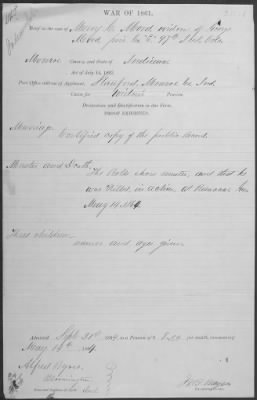 WAR OF 1861.
Brief in the case of Mary C. Mood widow of
Co. "E" 97th Ind. Vols.
Monroe County, and State of Indiana
Act of July 14, 1862.
Post Office address of Applicant, Stanford, Monroe Co Ind.
Claim for Widow's Pension.
Declaration and Identification in due Form.
PROOF EXHIBITED.
Marriage. Certified copy of the public record.
Muster and Death.
The Rolls show muster, and that he
was killed in action at Kenesaw
1864.
Three children.
names and ages given.
Admitted Sept 30th 1864 to a Pension of $ 8.00 per month, commencing
Alfred
Bloomington
Examining Clerk